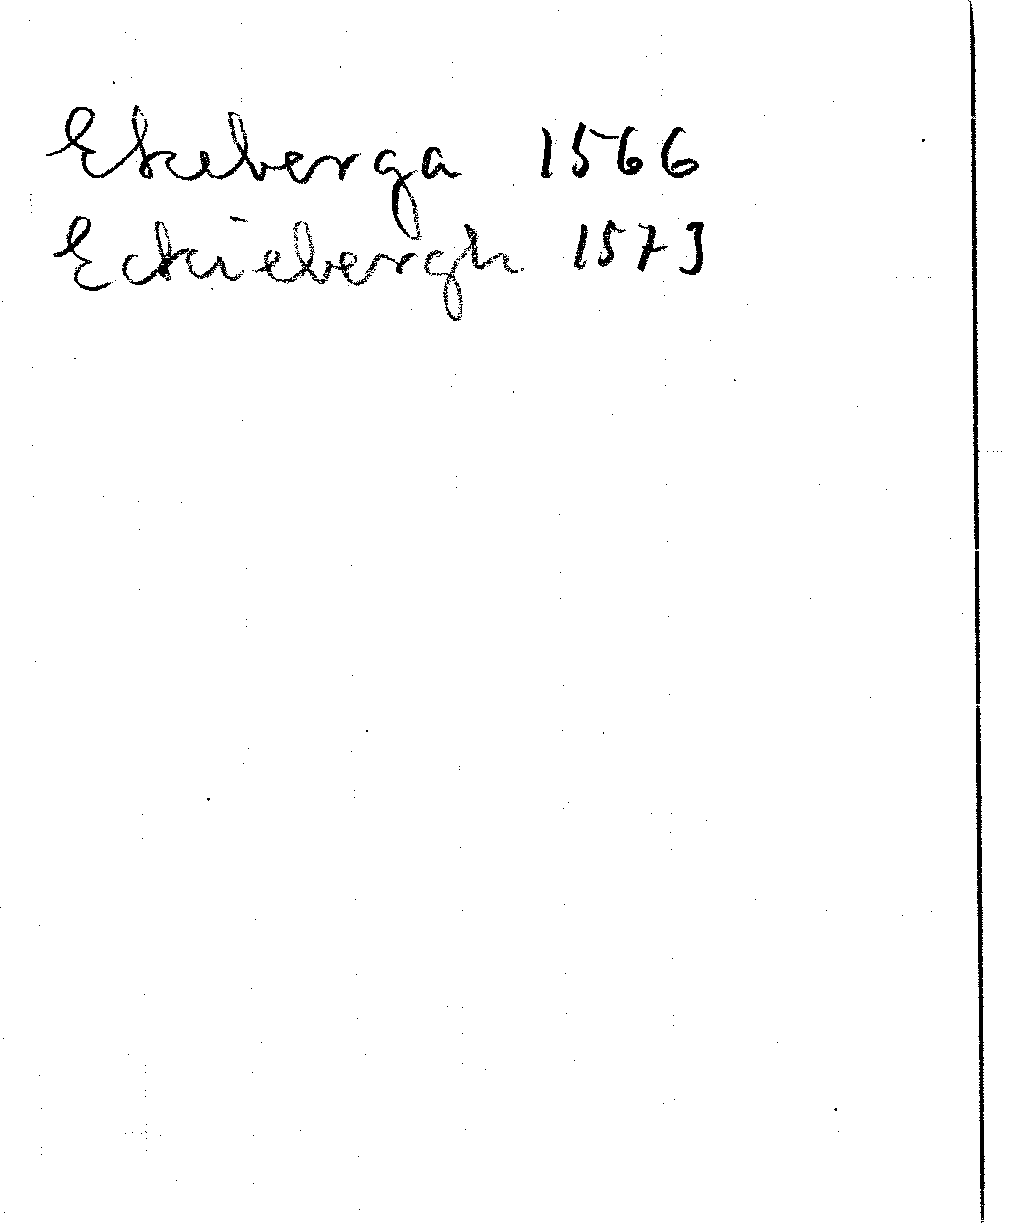 Ekeberga 1566
Eckiebergh 1573